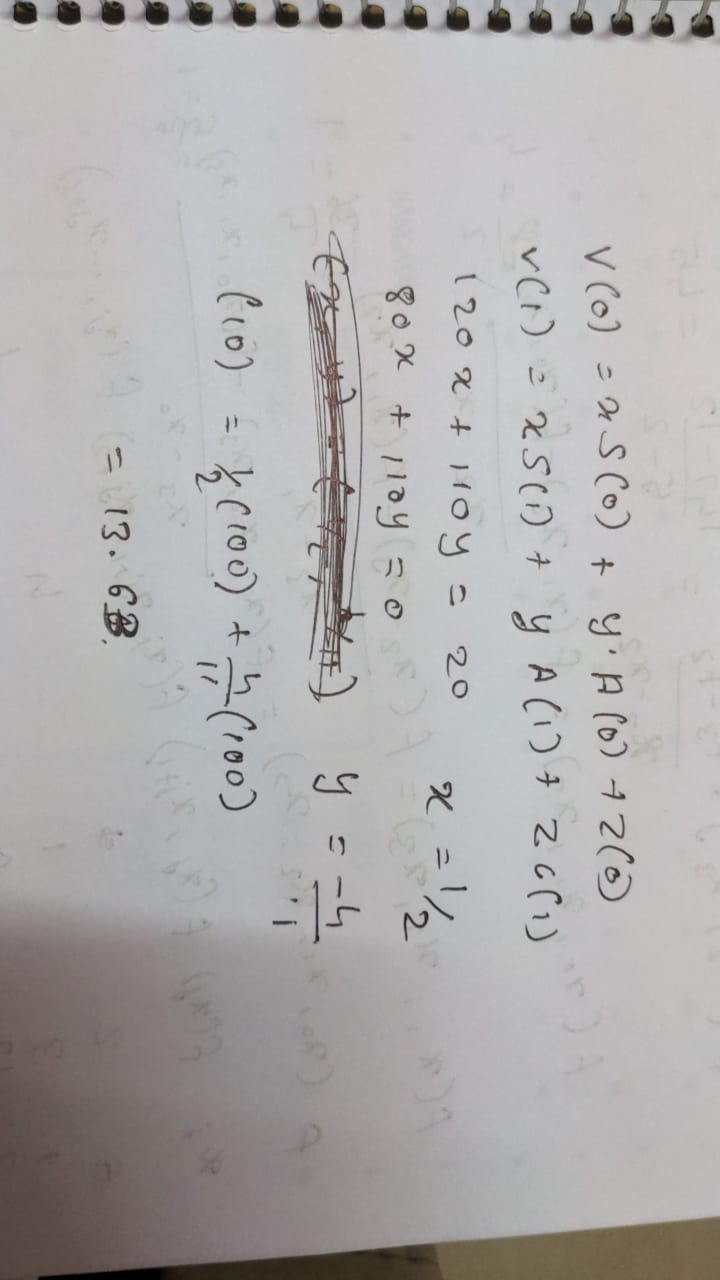 V(0) = x S(0) + y A(0) + z(0)
V(1) = x S(1) + y A(1) + z C(1)
120 x + 110 y = 20
x = 1/2
80 x + 110y = 0
y = -4/11
C(0) = 1/2 (100) + 4/11 (100)
= 13.6